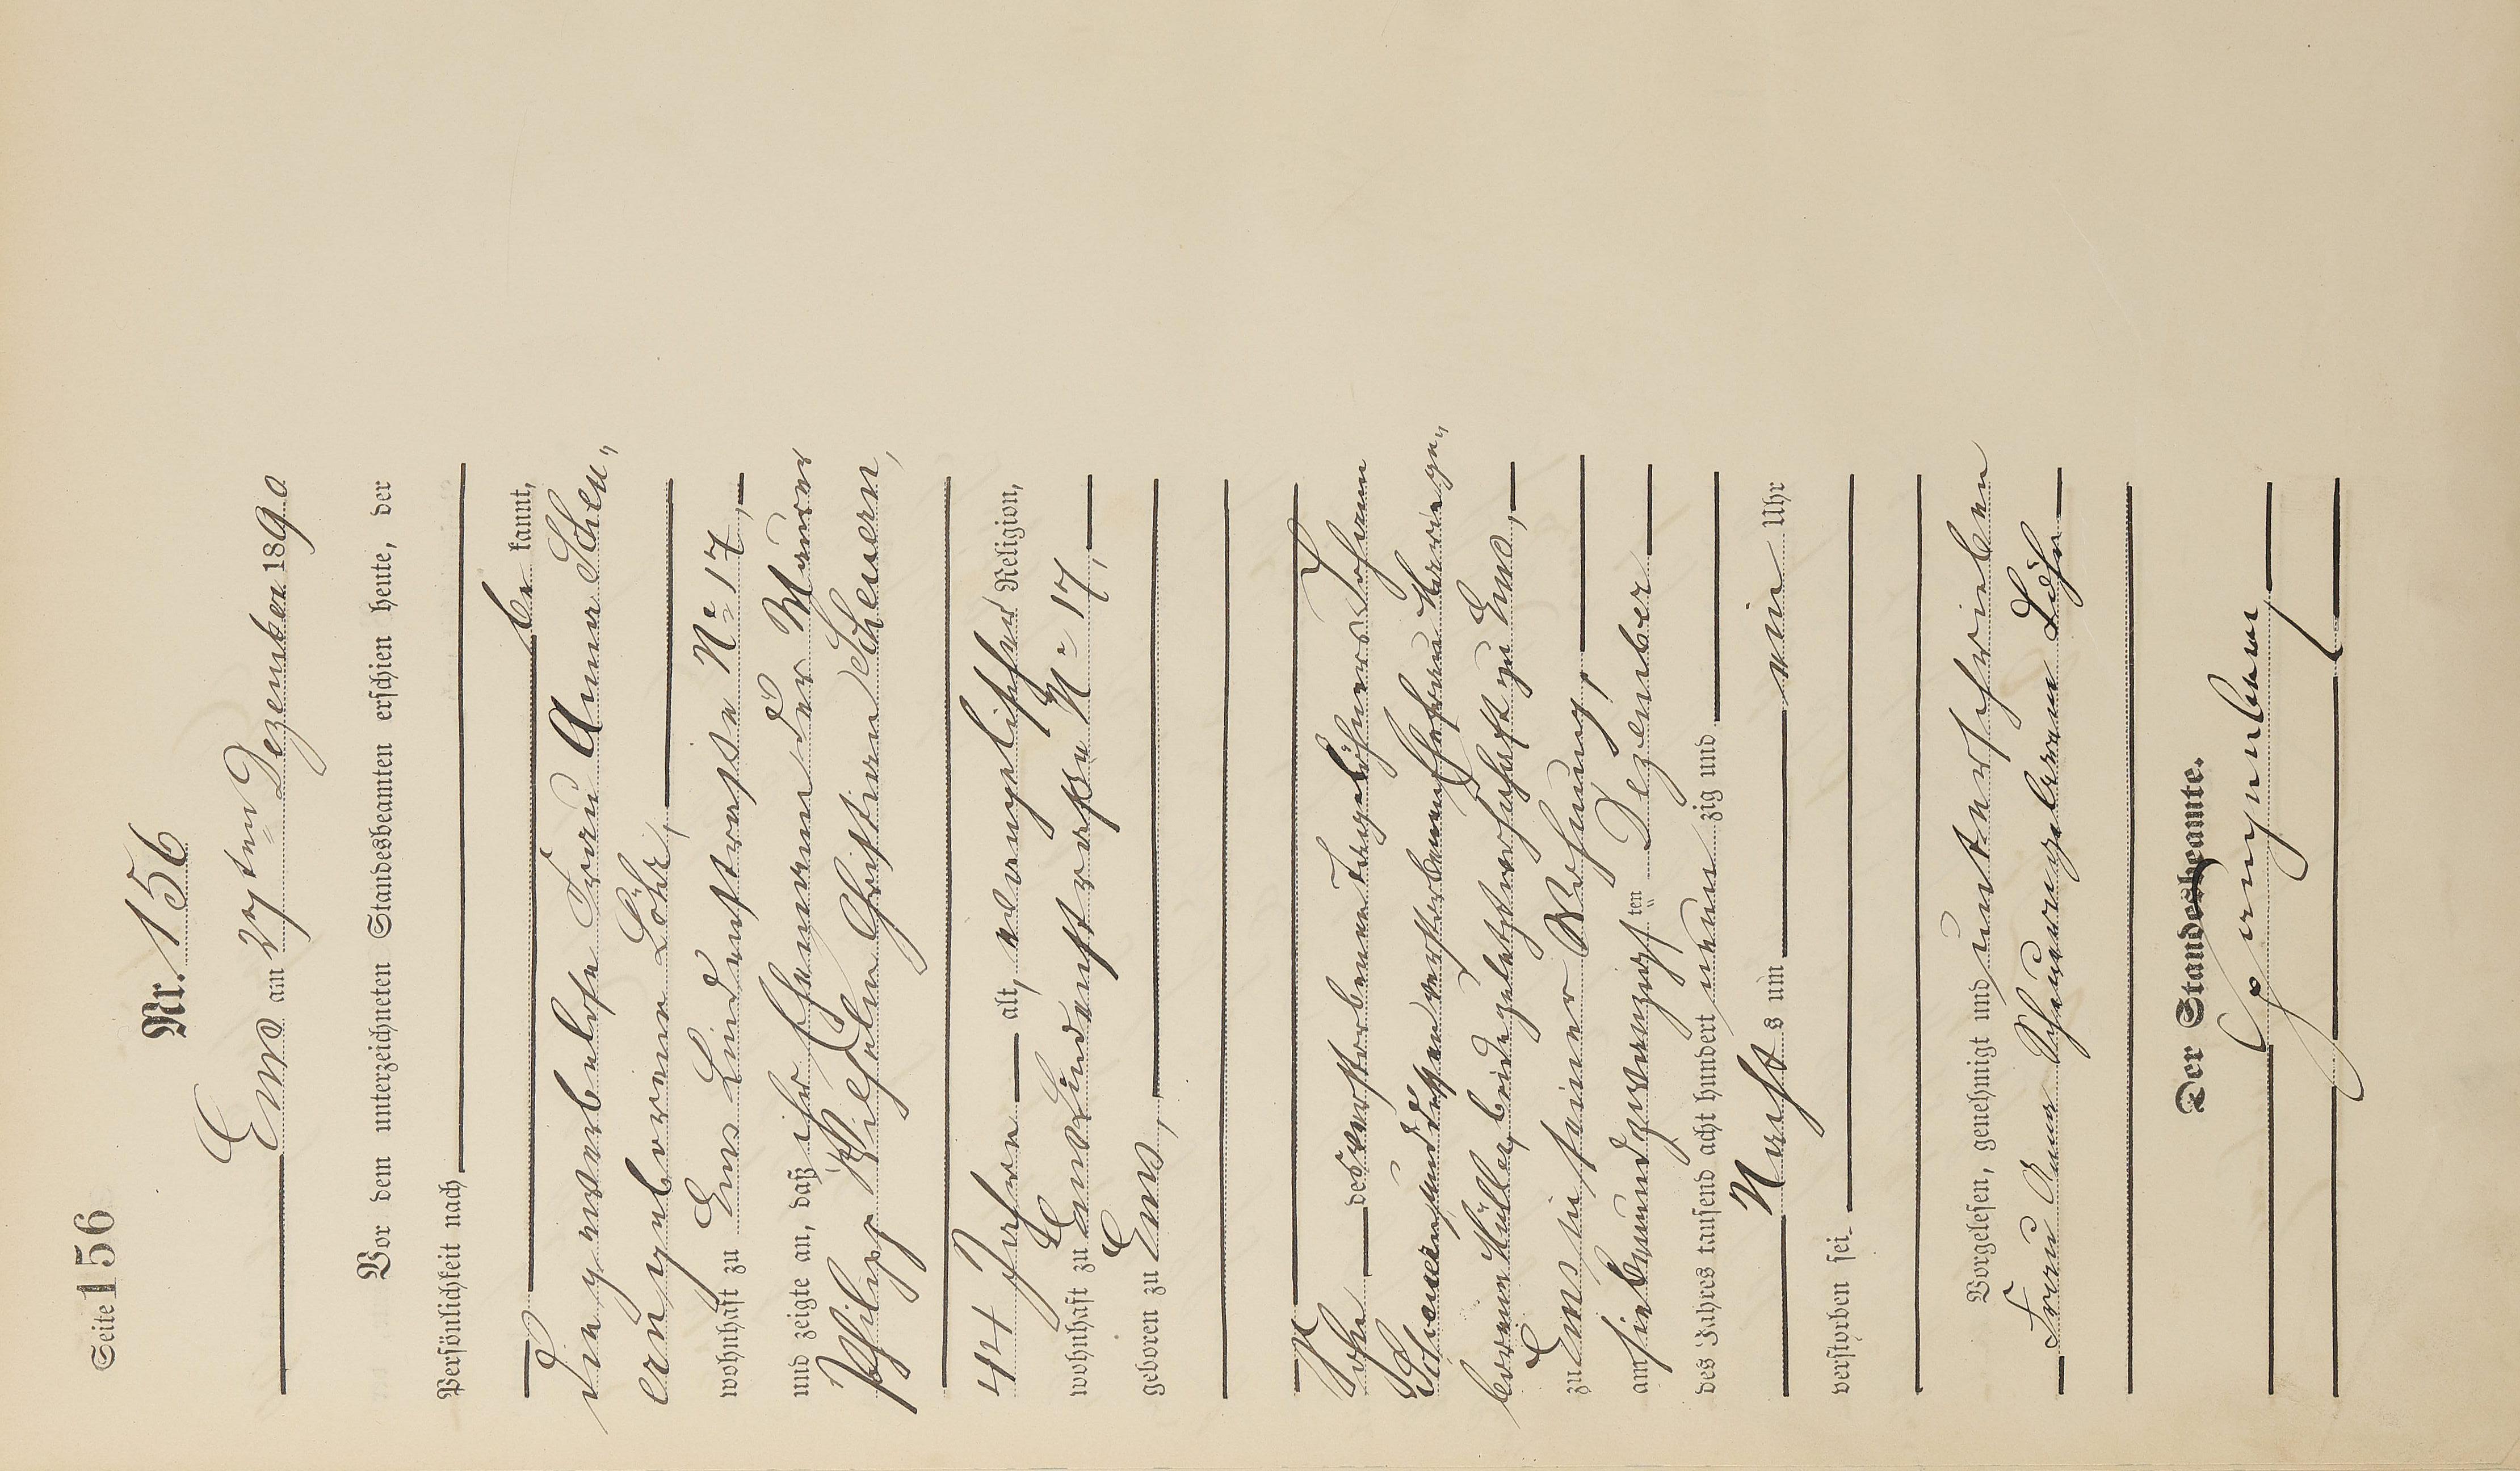 Seite 156
Nr. 156
Ems am 27ten Dezember 1890
Vor dem unterzeichneten Standesbeamten erschien heute, der
Persönlichkeit nach
be kannt,
die gewerbelose Frau Anna Scheu„
ern geborene Löhr,
wohnhaft zu Ems Lindenstrasse No 17,
und zeigte an, daß ihr Ehemann der Maurer
Philipp Wilhelm Christian Scheuern,
44 Jahre alt, evangelischer Religion,
wohnhaft zu Ems Lindenstrasse No 17,
geboren zu Ems,
Sohn des verstorbenen Tagelöhners Johann
Scheuern und dessen verstorbenen Ehefrau Marie ge„
borene Müller, beide zuletzt wohnhaft zu Ems,
zu Ems in seiner Wohnung,
am siebenundzwanzigsten Dezember
des Jahres tausend acht hundert neunzig und
Nachts um ein Uhr
verstorben sei.
Vorgelesen, genehmigt und unterschrieben
Frau Anna Scheuern geborene Löhr
Der Standesbeamte.